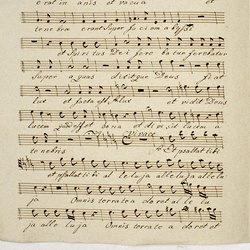 erat in anis et vacua et
tenebrae erant super faciem abyssi
et Spiritus Dei fere batur ferebatur
super aquas dixitque Deus fiat
lux et facta est lux et vidit Deus
lucem quod esset bona et divisit lucem a
tenebris Vivace Et psallat tibi
et psallat tibi al le lu ja alleluja allelu
ja Omnis terra te a do ret al le lu
ja alle luja Omnis terra te a do ret et